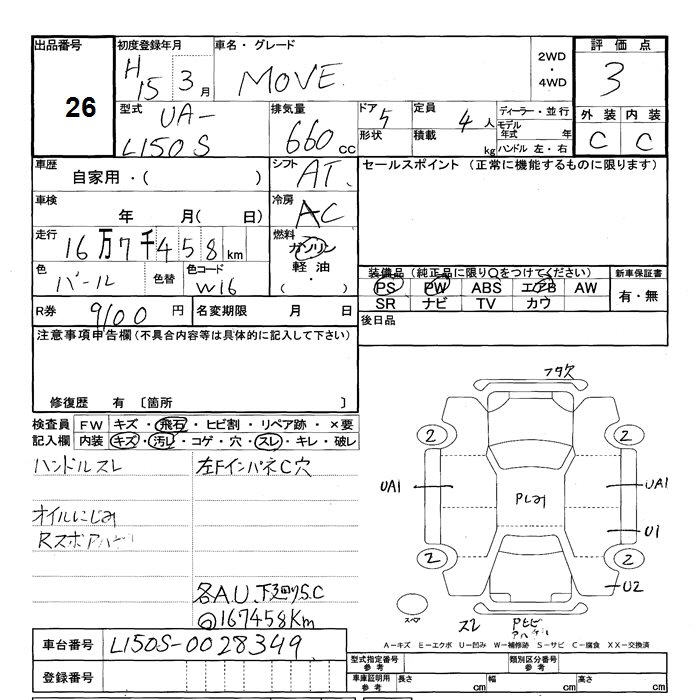 出品番号 初度登録年月 車名・グレード 評価点
26 H15 3月 MOVE 2WD・4WD 3
型式 排気量 ドア 定員 ディーラー・並行 外装 内装
UA-L150S 660cc 5 4人 モデル年式 年 C C
形状 積載 kg ハンドル 左・右
車歴 シフト セールスポイント (正常に機能するものに限ります)
自家用・( ) AT
車検 冷房
年 月( 日) AC
走行 燃料
16万7千458km ガソリン
軽油
・( )
色 色替 色コード
パール W16
装備品 (純正品に限り○をつけてください) 新車保証書
PS PW ABS エアB AW 有・無
SR ナビ TV カワ
R券 9100円 名変期限 月 日 後日品
注意事項申告欄(不具合内容等は具体的に記入して下さい)
修復歴 有 〔箇所 〕
検査員記入欄 FW キズ・飛石・ヒビ割・リペア跡・×要
内装 キズ・汚レ・コゲ・穴・スレ・キレ・破レ
ハンドルスレ 左FインパネC穴
オイルにじみ
各A.U.下廻りS.C
@167458Km
フタ欠
2 2
UA1 UA1
U1
2 2
U2
スペア スレ
A-キズ E-エクボ U-凹み W-補修跡 S-サビ C-腐食 XX-交換済
車台番号 L150S-0028349
型式指定番号 参考 類別区分番号 参考
登録番号 車庫証明用 参考 長さ cm 幅 cm 高さ cm